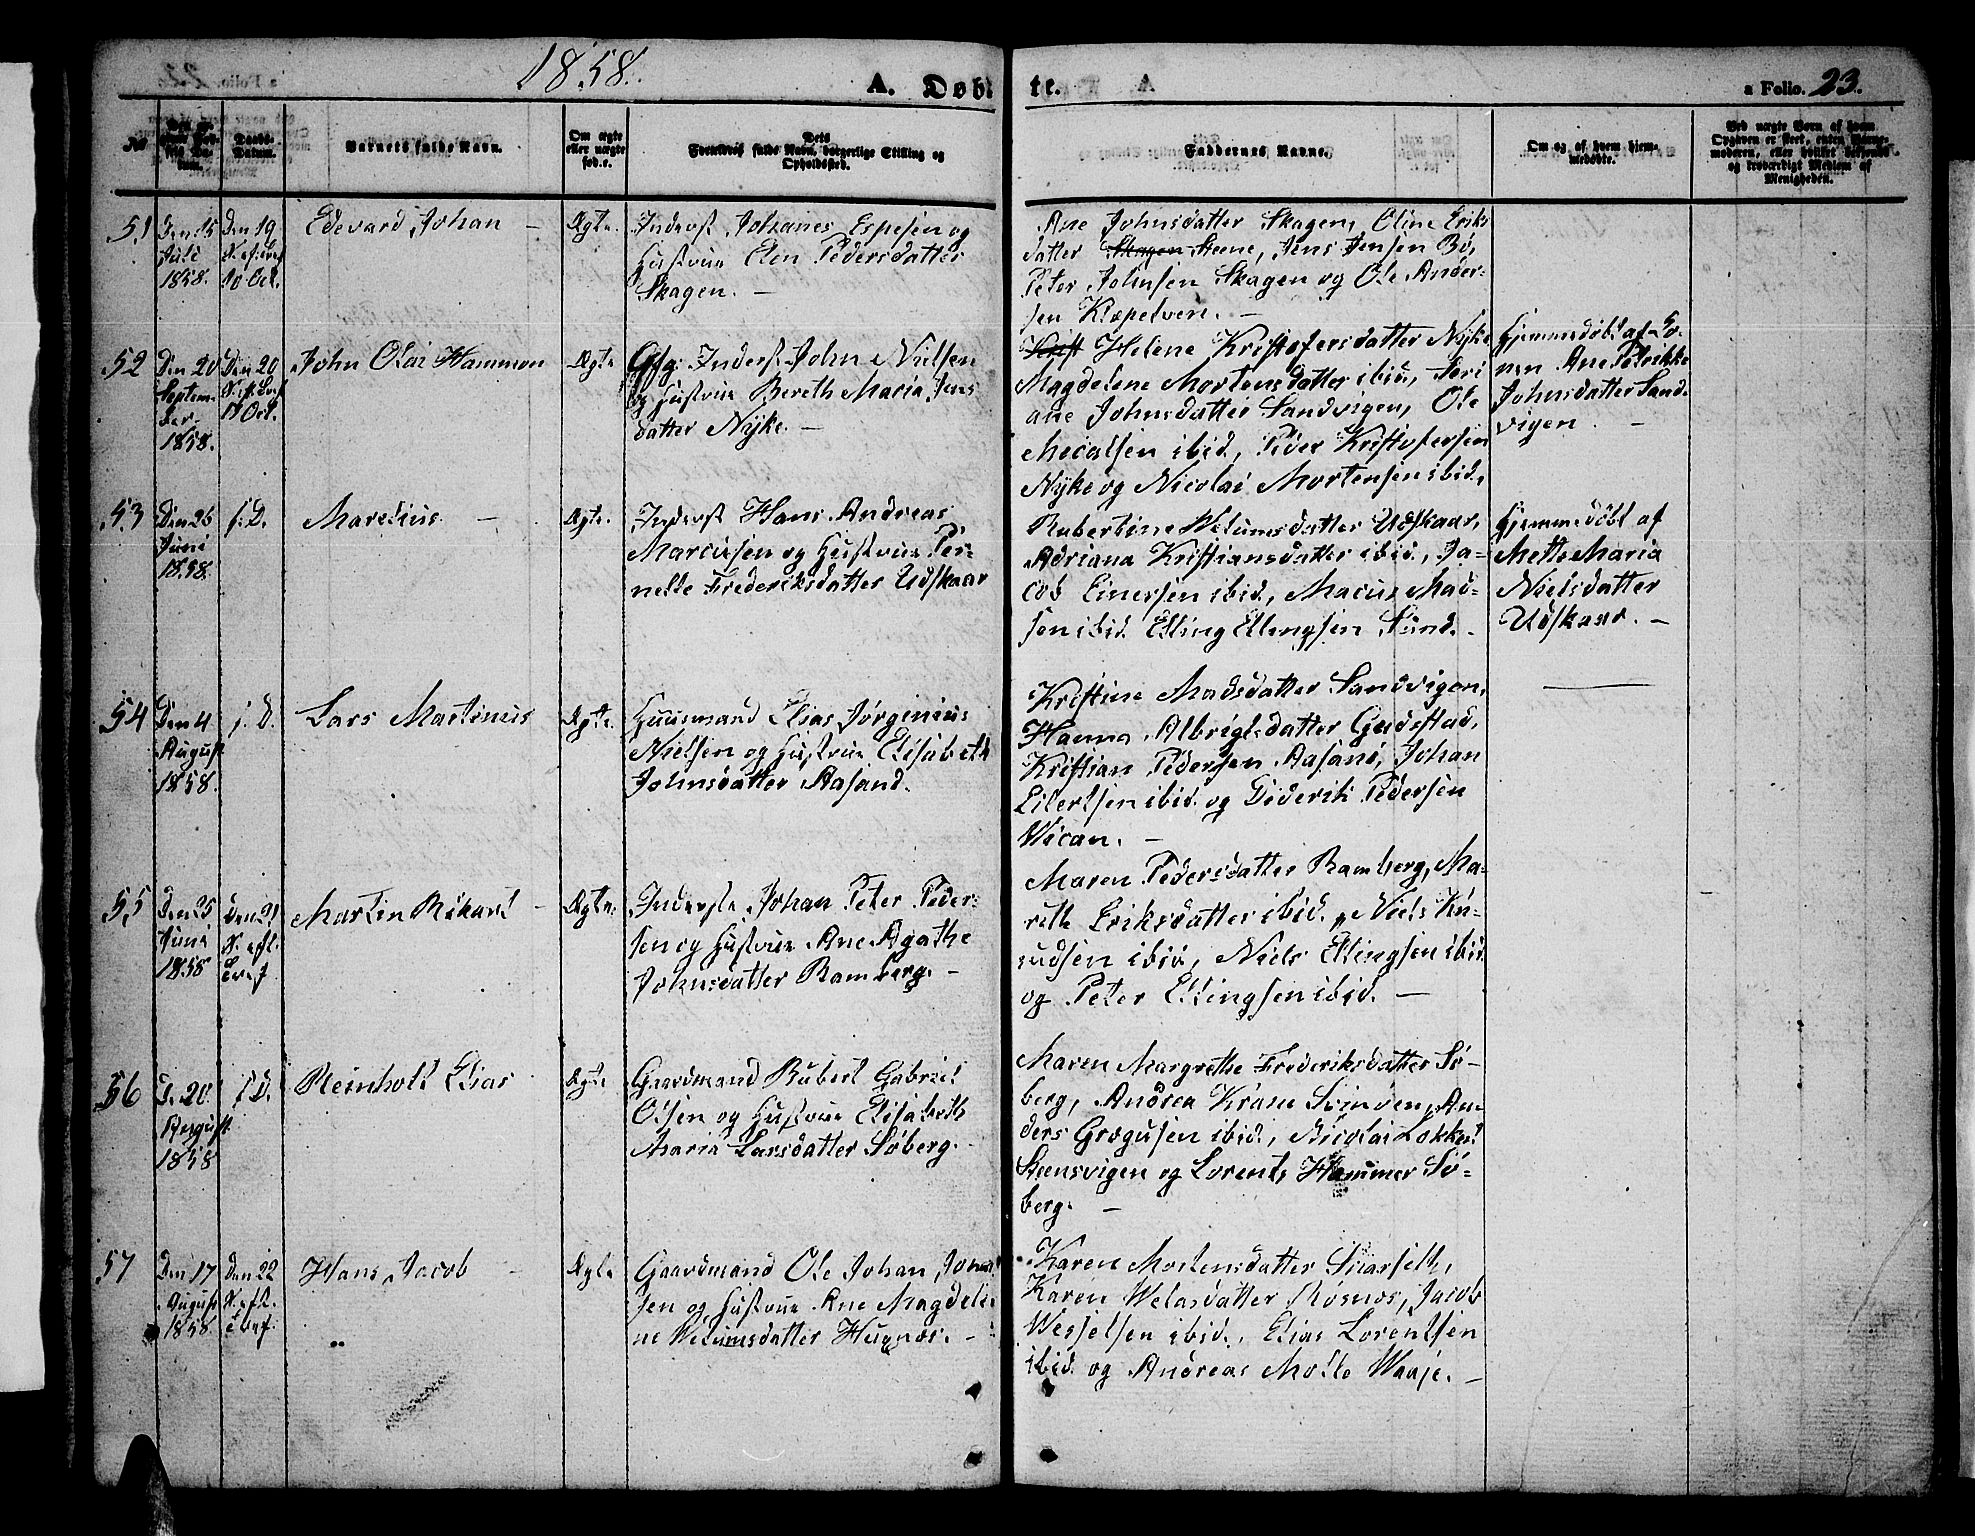 1858.
A. Døbte.
a Folio. 23.
No
Barnets fulde Navn.
Om ægte eller uægte fød.e.
Forældres fulde Navn, borgerlige Stilling og Opholdssted.
Faddernes Navne.
Om og af hvem hjemmedøbte.
51
Den 15 Juli 1858.
Den 19 10 Oct.
Edevard Johan -
Ægte.
Inderst Johanes Espesen og
Hustrue Elen Pedersdatter
Skagen. -
Ane Johnsdatter Skagen, Oline Eriks
datter Skagen Steene, Jens Jensen Bø,
Peter Johnsen Skagen og Ole Ander-
sen Klæpelveri. -
52
Den 20 September 1858.
Den 20
John Olai Hammon
Ægte
Gfg. Inderst John Nielsen
og Hustrue Bereth Maria Jens
datter Nyke. -
Helene Kristofersdatter Nyke
Magdelene Mortensdatter ibid, Seri
ane Johnsdatter Sandvigen, Ole
Mecalsen ibid, Peder Kristofersen
Nyke og Nicolai Mortensen ibid.
Hjemmedøbt af Jo-
nen Ane Peterikke
Johnsdatter Sand-
vigen. -
53
Den 26 Juni 1858.
f. D.
Maredius. -
Ægte.
Inderst Hans Andreas
Marcusen og Hustrue Per-
nelle Frederiksdatter Udskaar
Rubertine Welumsdatter Udskaar,
Adriana Kristiansdatter ibid, Ja-
cob Einersen ibid, Macus Mad-
sen ibid. Elling Ellingsen Sund. -
Hjemmedøbt af
Mette Maria
Nielsdatter
Udskaar. -
54
Den 4 August 1858.
f. D.
Lars Martinus
Ægte.
Huusmand Elias Jørginius
Nielsen og Hustrue Elisabeth
Johnsdatter Aasand.
Kristine Madsdatter Sandvigen,
Hanna Albrigtsdatter Gudestad,
Kristian Pedersen Aasand, Johan
Eilertsen ibid. og Diderik Pedersen
Wican. -
55
Den 25 Juni 1858
Den 21
Martin Rikard -
Ægte.
Inderste Johan Peter Peder-
sen og Hustrue Ane Agathe
Johnsdatter Ramberg. -
Maren Pedersdatter Ramberg, Ma-
rette Eriksdatter ibid., Niels Kn-
udsen ibid, Niels Ellingsen ibid
og Peter Ellingsen ibid. -
56
D. 20 August 1858
f. D.
Reinholt Elias
Ægte
Gaardmand Rubert Gabriel
Olsen og Hustrue Elisabeth
Maria Larsdatter Søberg. -
Maren Margrethe Frederiksdatter Sø-
berg, Andrea Krane Steinven, An-
ders Grøgusen ibid, Nicolai Lokkert
Steensvigen og Lorents Hammer Sø-
berg. -
57
Den 17 August 1858.
Den 22
Hans Jacob -
Ægte
Gaardmand Ole Johan Jona-
sen og Hustrue Ane Magdele
ne Welumsdatter Hugnæs. -
Karen Mortensdatter Skarfelt,
Karen Welasdatter Røsnæs, Jacob
Wesselsen ibid., Elias Lorentsen
ibid. og Andreas Molte Waaje. -